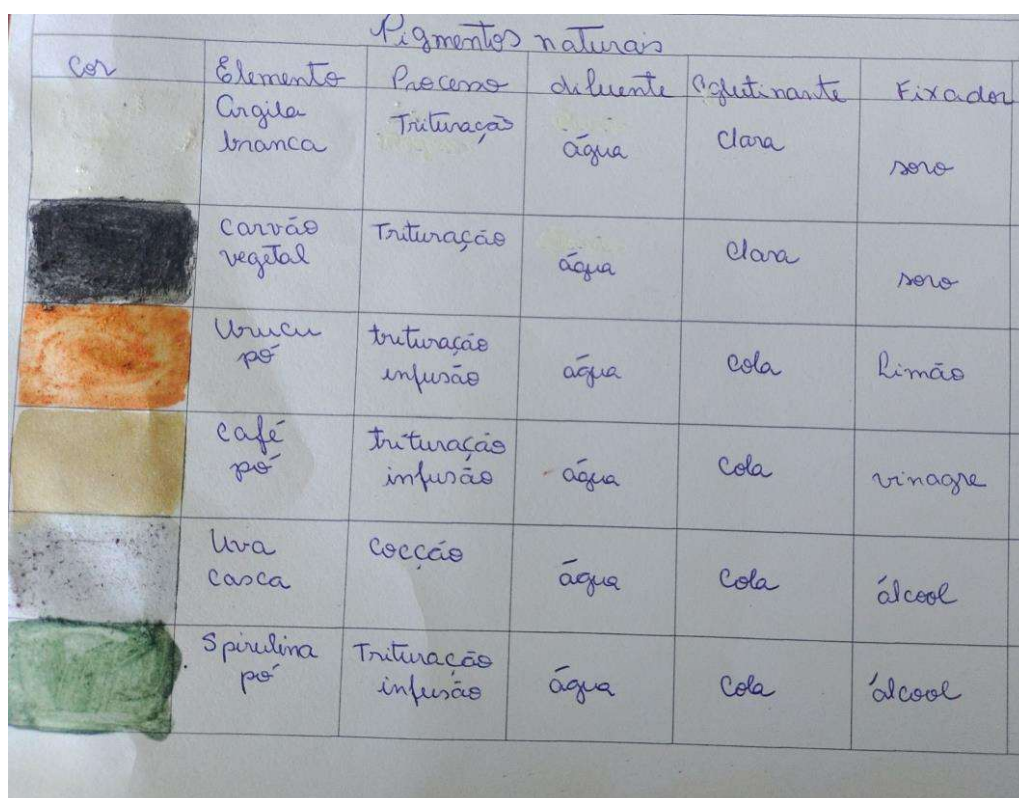 Pigmentos naturais
Cor Elemento Processo diluente Aglutinante Fixador
Argila branca Trituração água Clara soro
Carvão vegetal Trituração água Clara soro
Urucu pó trituração infusão água Cola Limão
Café pó trituração infusão água Cola vinagre
Uva casca cocção água Cola álcool
Spirulina pó Trituração infusão água Cola álcool